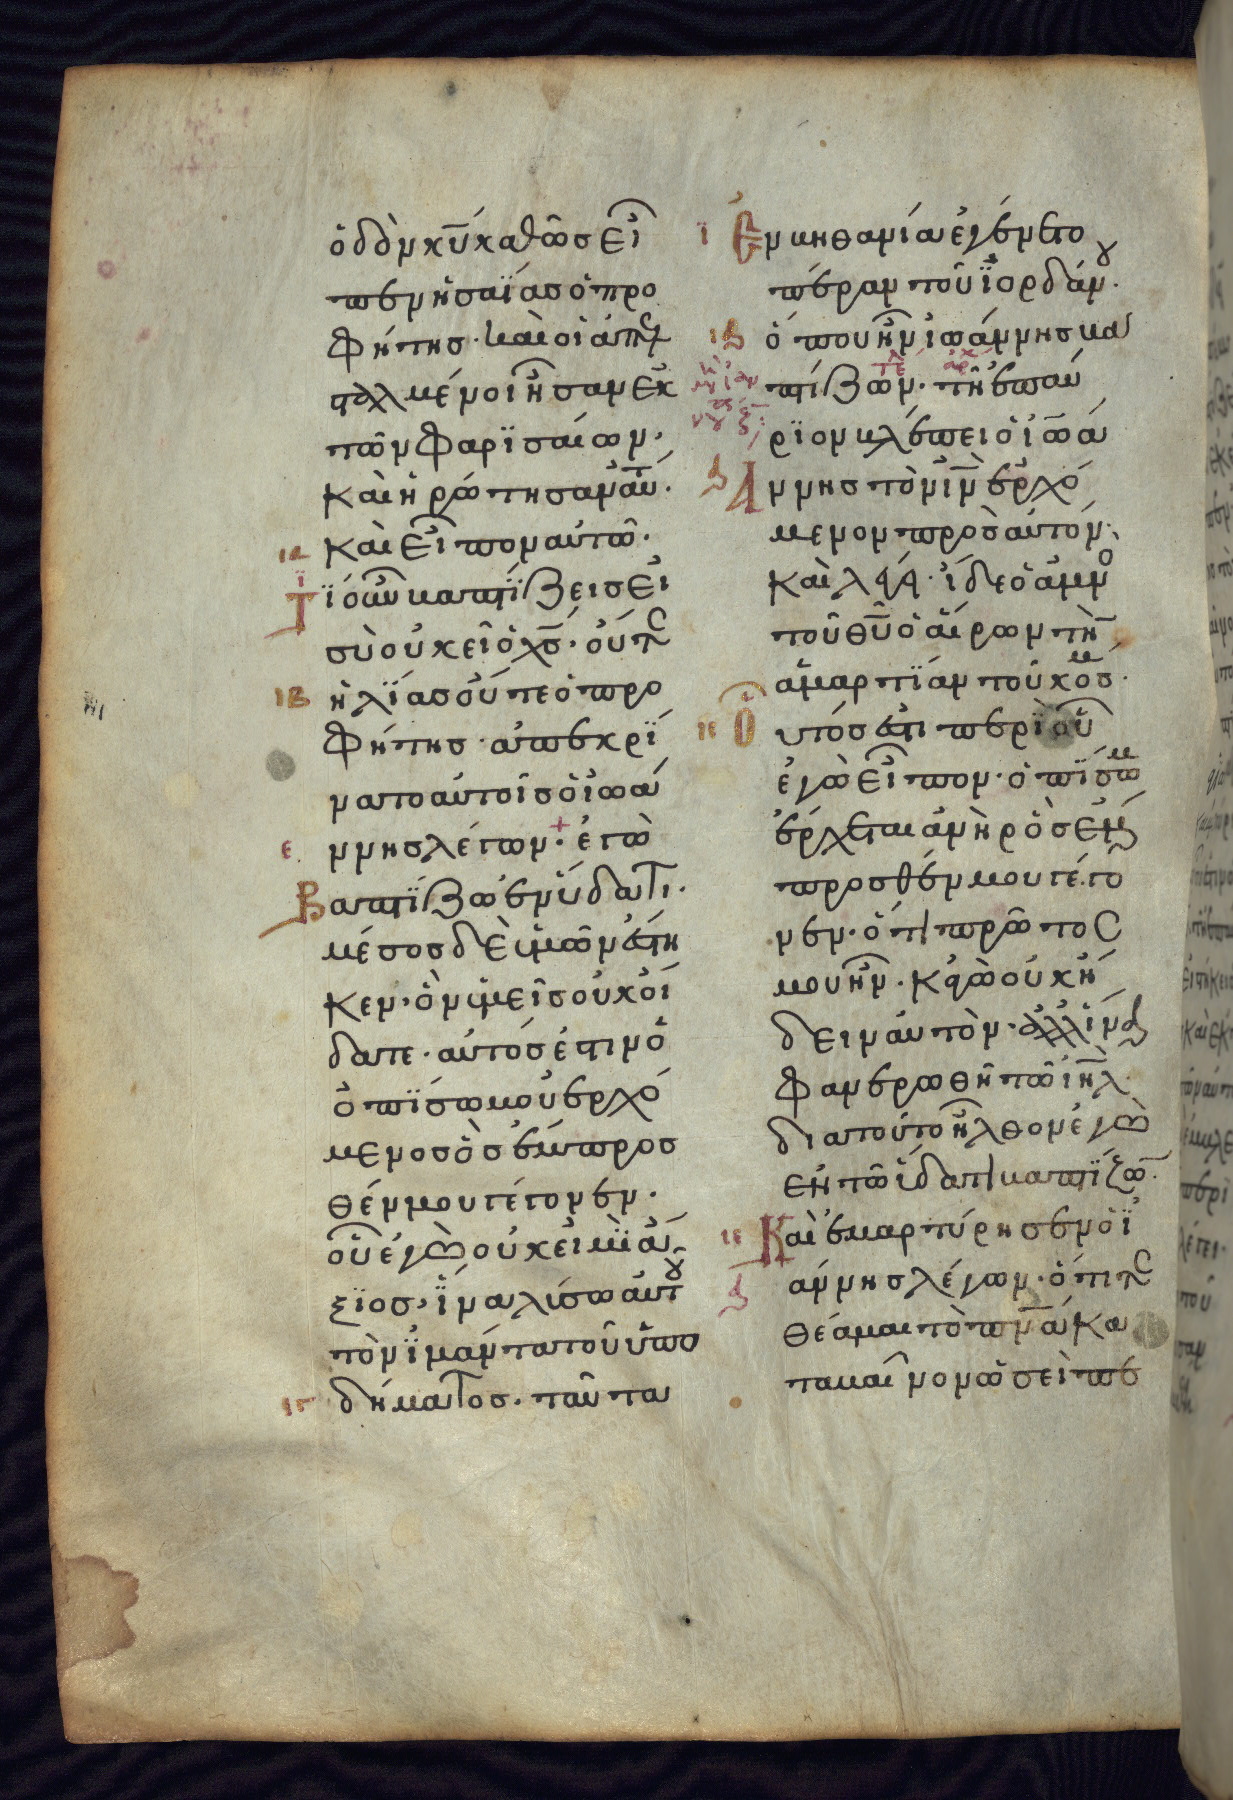 ὁδὸν κ̅υ̅ καθὼς εἶ
πεν ἡσαΐας ὁ προ
φήτης· καὶ οἱ ἀπε
σταλμένοι ἦσαν ἐκ
τῶν φαρϊσαίων·
καὶ ἠρώτησαν αὐτ·
καὶ εἶπον αὐτῶ·
Τΐ οὖν βαπτΐζεις εἰ
σὺ οὐκ εἶ ὁ χ̅ς̅· οὔτε
ἠλΐας οὔτε ὁ προ
φήτης· ἀπεκρΐ
νατο αὐτοῖς ὁ ἰωάν
νης λέγων· ἐγὼ
Βαπτΐζω ἐν ὕδατι·
μέσος δὲ ὑμῶν ἕστη
κεν· ὃν ὑμεῖς οὐκ οἴ
δατε· αὐτός ἐστιν ὁ
ὀπΐσω μου ἐρχό
μενος ὃς ἔμπροσ
θέν μου γέγονεν·
οὗ ἐγὼ οὐκ εἰμῒ ἄ
ξϊος· ἵνα λύσω αὐτου
τὸν ϊμάντα τοῦ ὑπο
δήματος· ταῦτα
Ἐν βηθανία ἐγένετο
πέραν τοῦ ϊορδάνου·
ὅπου ἦν ἰωάννης βα
πτίζων· τῆ ἐπαύ
ριον βλέπει ὁ ἰωά
ννης τὸν ι̅ν̅ ἐρχό
μενον πρὸς αὐτόν·
καὶ λέγει· ἴδε ὁ ἀμνο
τοῦ θ̅υ̅ ὁ αἴρων τὴν
ἁμαρτΐαν τοῦ κοσμ·
Οὗτός ἐστι περὶ οὗ
ἐγὼ εἶπον· ὀπΐσω μ
ἔρχεται ἀνὴρ ὃς ἔμ
προσθέν μου γέγο
νεν· ὅτι πρῶτος
μου ἦν· κἀγὼ οὐκ ἤ
δειν αὐτὸν· ἀλλ' ἵνα
φανερωθῆ τῶ ι̅η̅λ̅·
δια τοῦτο ἦλθον ἐγὼ
ἐν τῶ ὕδατι βαπτΐζων·
Καὶ ἐμαρτύρησεν ὁ ϊω
άννης λέγων· ὅτι τε
θέαμαι τὸ π̅ν̅α̅ κα
ταβαῖνον ὡσεὶ πε